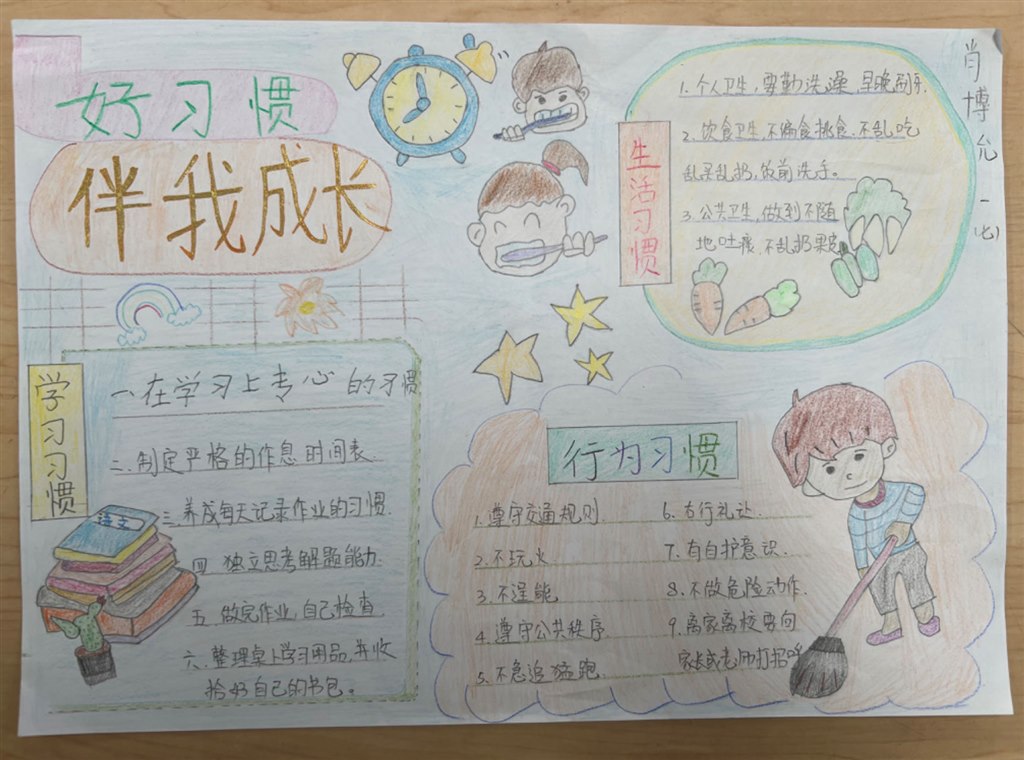 好习惯
伴我成长
学习习惯
一.在学习上专心的习惯
二.制定严格的作息时间表.
三.养成每天记录作业的习惯.
四 独立思考解题能力.
五.做完作业,自己检查
六.整理桌上学习用品,并收
拾好自己的书包。
语文
生活习惯
1.个人卫生,要勤洗澡,早晚刷牙.
2.饮食卫生.不偏食挑食.不乱吃
乱丢乱扔,饭前洗手。
3.公共卫生,做到不随
地吐痰.不乱扔果皮
肖博允 一(七)
行为习惯
1.遵守交通规则.
2.不玩火
3.不逞能
4.遵守公共秩序
5.不急追猛跑.
6.右行礼让.
7.有自护意识.
8.不做危险动作.
9.离家离校要向
家长或老师打招呼